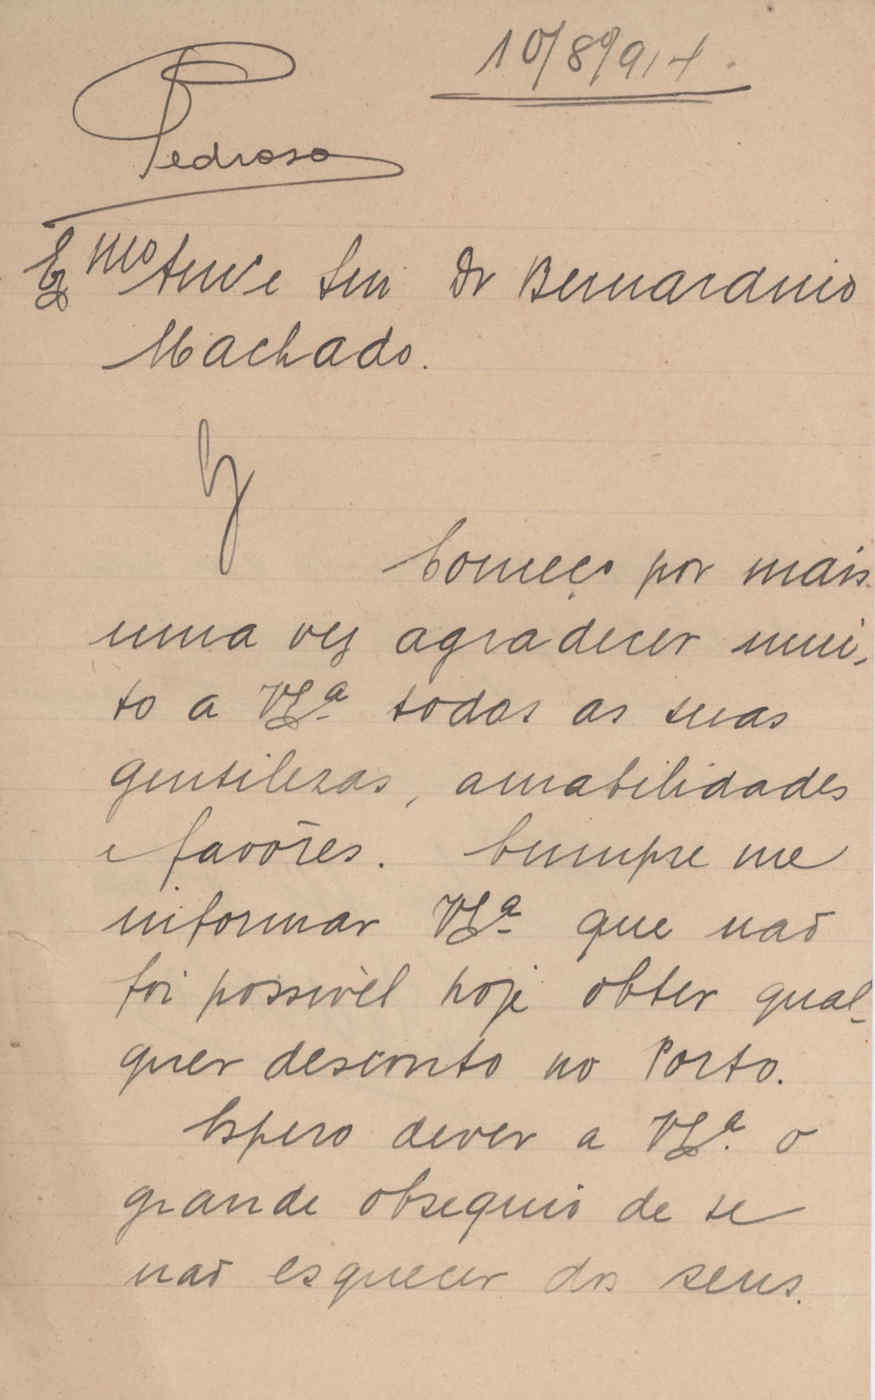 10/8/914.
Pedroso
Exmo Amº e Snr Dr Bernardino
Machado.
Começo por mais
uma vez agradecer mui-
to a VExª todas as suas
gentilezas, amabilidades
e favôres. Cumpre me
informar VExª que naõ
foi possivèl hoje obter qual-
quer desconto no Porto.
Espero dever a VExª o
grande obsequio de se
naõ esquecer dos seus